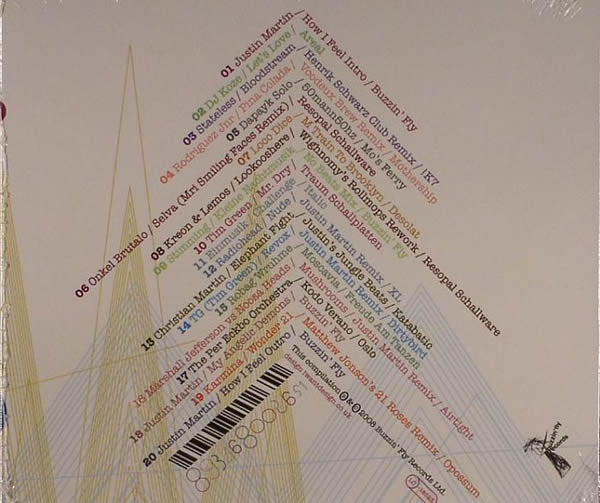 01 Justin Martin / How I Feel Intro / Buzzin' Fly
02 DJ Koze / Let's Love / Areal
03 Stateless / Bloodstream / Henrik Schwarz Club Remix / !K7
04 Rodriguez Jnr / Pina Colada / Voodeux Brew Remix / Mothership
05 Dapayk Solo / 50mann50hz / Mo's Ferry
06 Onkel Brutalo / Selva (Mri Smiling Faces Remix) / Resopal Schallware
07 Loco Dice / M Train To Brooklyn / Desolat
08 Kreon & Lemos / Lookooshere / Wighnomy's Rollmops Rework / Resopal Schallware
09 Stimming / Kleine Nachtmusik / No Beats Mix / Buzzin' Fly
10 Tim Green / Mr. Dry / Traum Schallplatten
11 Blumusik / Challenge / Italic
12 Radiohead / Nude / Justin Martin Remix / XL
13 Christian Martin / Elephant Fight / Justin's Jungle Beats / Katabatic
14 TG (Tim Green) / Revox / Justin Martin Remix / Dirtybird
15 / Moscavia / Freude Am Tanzen
16 Marshall Jefferson vs Noosa Heads / Mushrooms / Justin Martin Remix / Airtight
17 The Per Eckbo Orchestra / Kodo Verano / Oslo
18 Justin Martin / My Angelic Demons / Buzzin' Fly
19 Karmina / Wonder 21 / Mathew Jonson's 21 Roses Remix / Opossum
20 Justin Martin / How I Feel Outro / Buzzin' Fly
This compilation ℗ & © 2008 Buzzin' Fly Records Ltd.